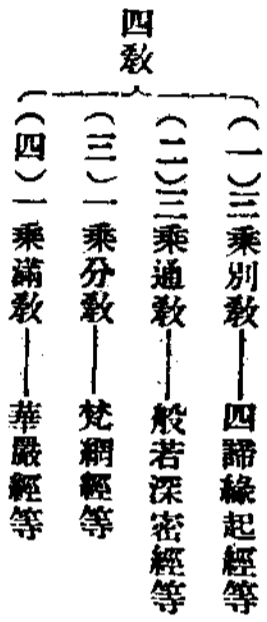 四敎
(一)三乘別敎——四諦緣起經等
(二)三乘通敎——般若深密經等
(三)一乘分敎——梵網經等
(四)一乘滿敎——華嚴經等